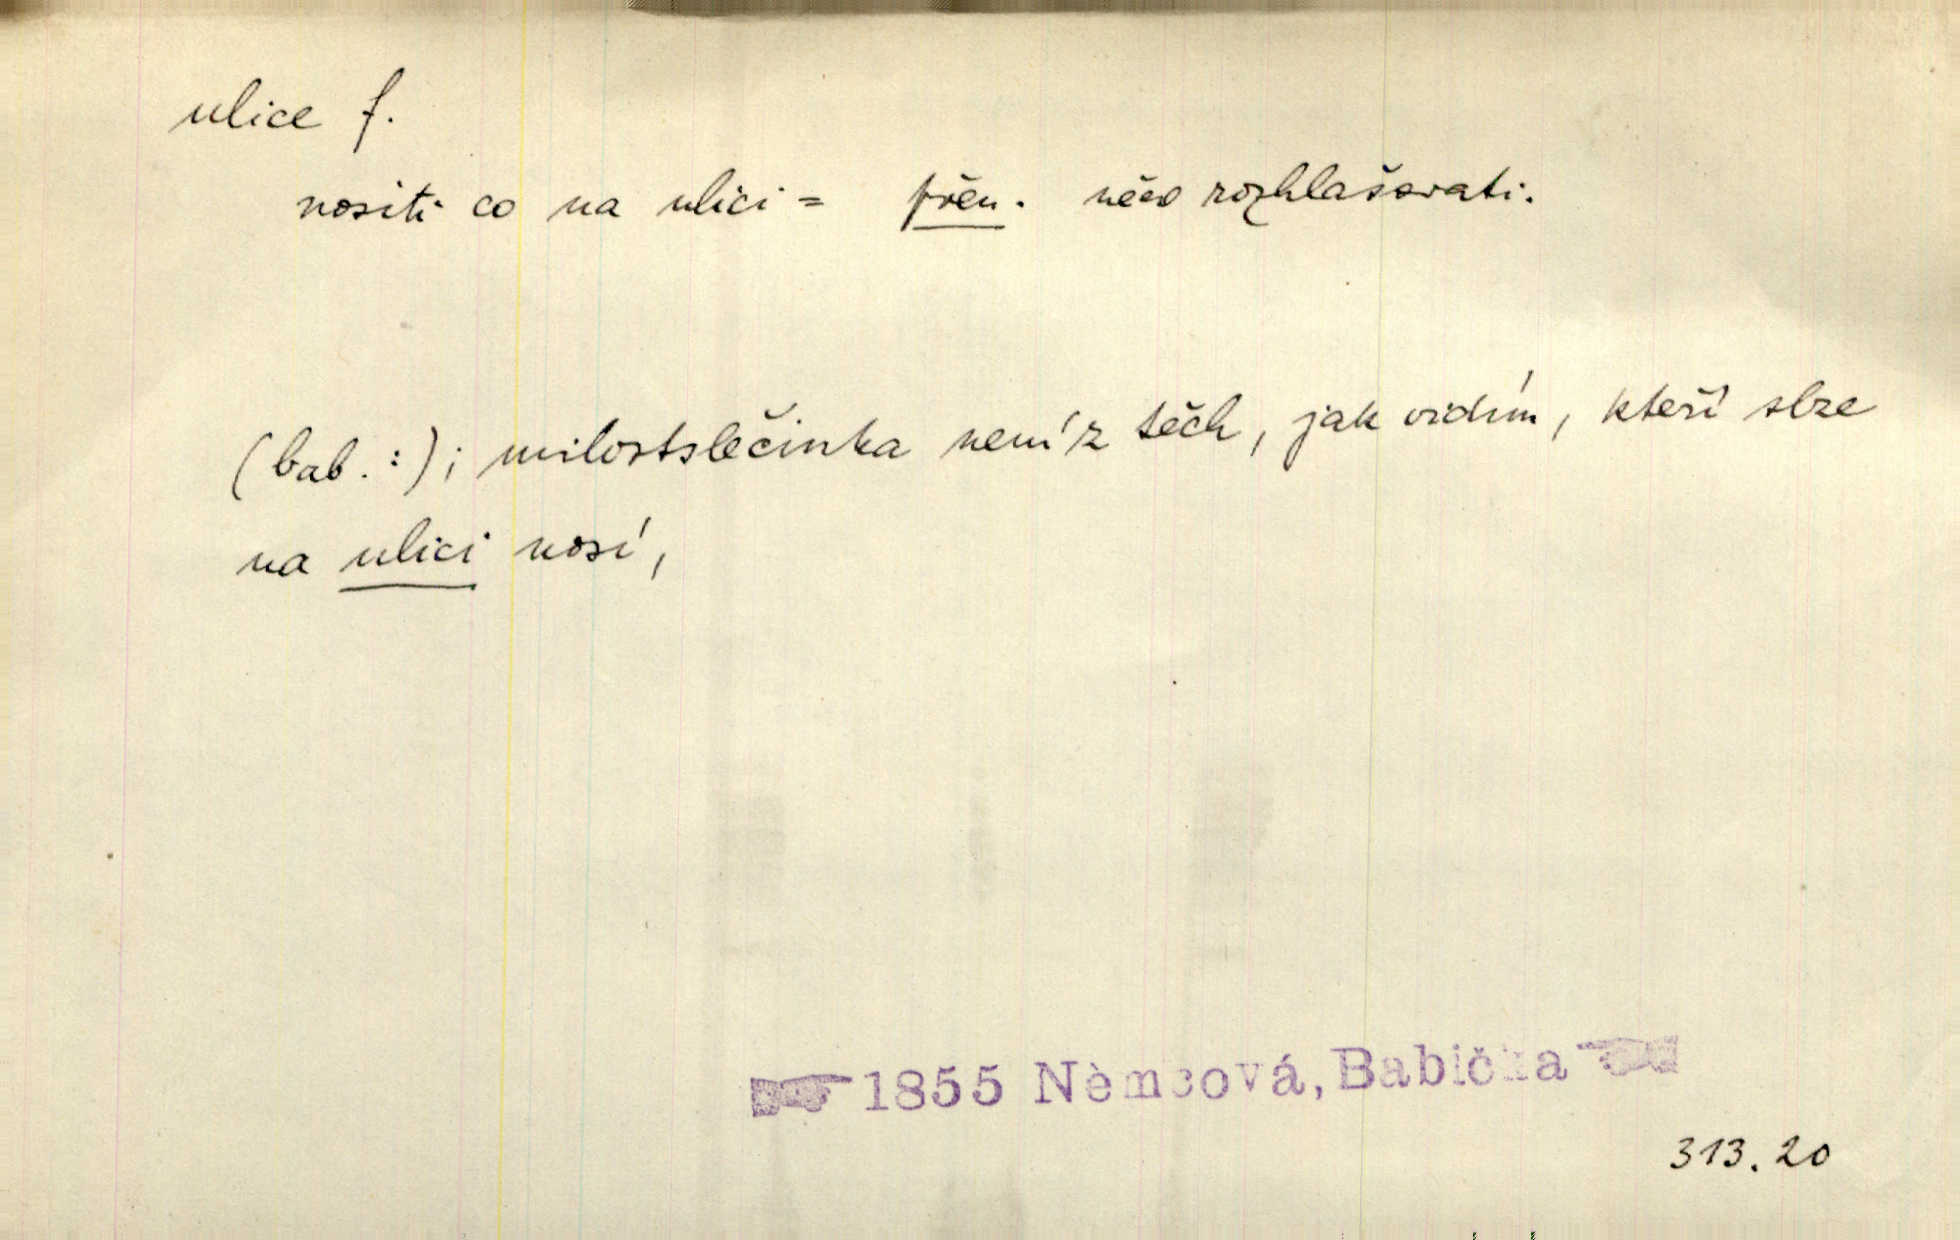 ulice f.
nositi co na ulici = přen. něco rozhlašovati.
(bab. :) ; milostslečinka není z těch, jak vidím, kteří slze
na ulici nosí,
1855 Němcová, Babička
313.20